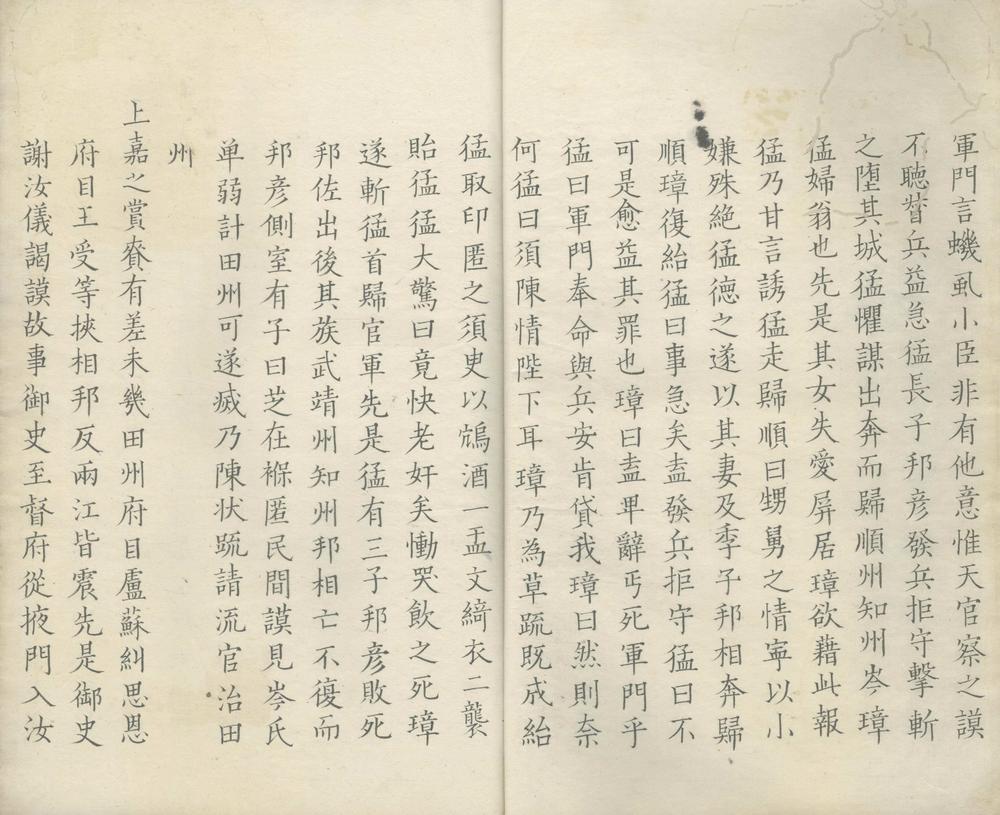 軍門言蟣虱小臣非有他意惟天官察之謨
不聽督兵益急猛長子邦彥發兵拒守擊斬
之墮其城猛懼謀出奔而歸順州知州岑璋
猛婦翁也先是其女失愛屏居璋欲藉此報
猛乃甘言誘猛走歸順曰甥舅之情寧以小
嫌殊絶猛德之遂以其妻及季子邦相奔歸
順璋復紿猛曰事急矣盍發兵拒守猛曰不
可是愈益其罪也璋曰盍畢辭丐死軍門乎
猛曰軍門奉命與兵安肯貸我璋曰然則奈
何猛曰須陳情陛下耳璋乃為草疏既成紿
猛取印匿之須史以鴆酒一盂文綺衣二襲
貽猛猛大驚曰竟快老奸矣慟哭飲之死璋
遂斬猛首歸官軍先是猛有三子邦彥敗死
邦佐出後其族武靖州知州邦相亡不復而
邦彥側室有子曰芝在褓匿民間謨見岑氏
单弱計田州可遂滅乃陳状疏請流官治田
州
上嘉之賞賚有差未幾田州府目盧蘇糾思恩
府目王受等挾相邦反兩江皆震先是御史
謝汝儀謁謨故事御史至督府從掖門入汝